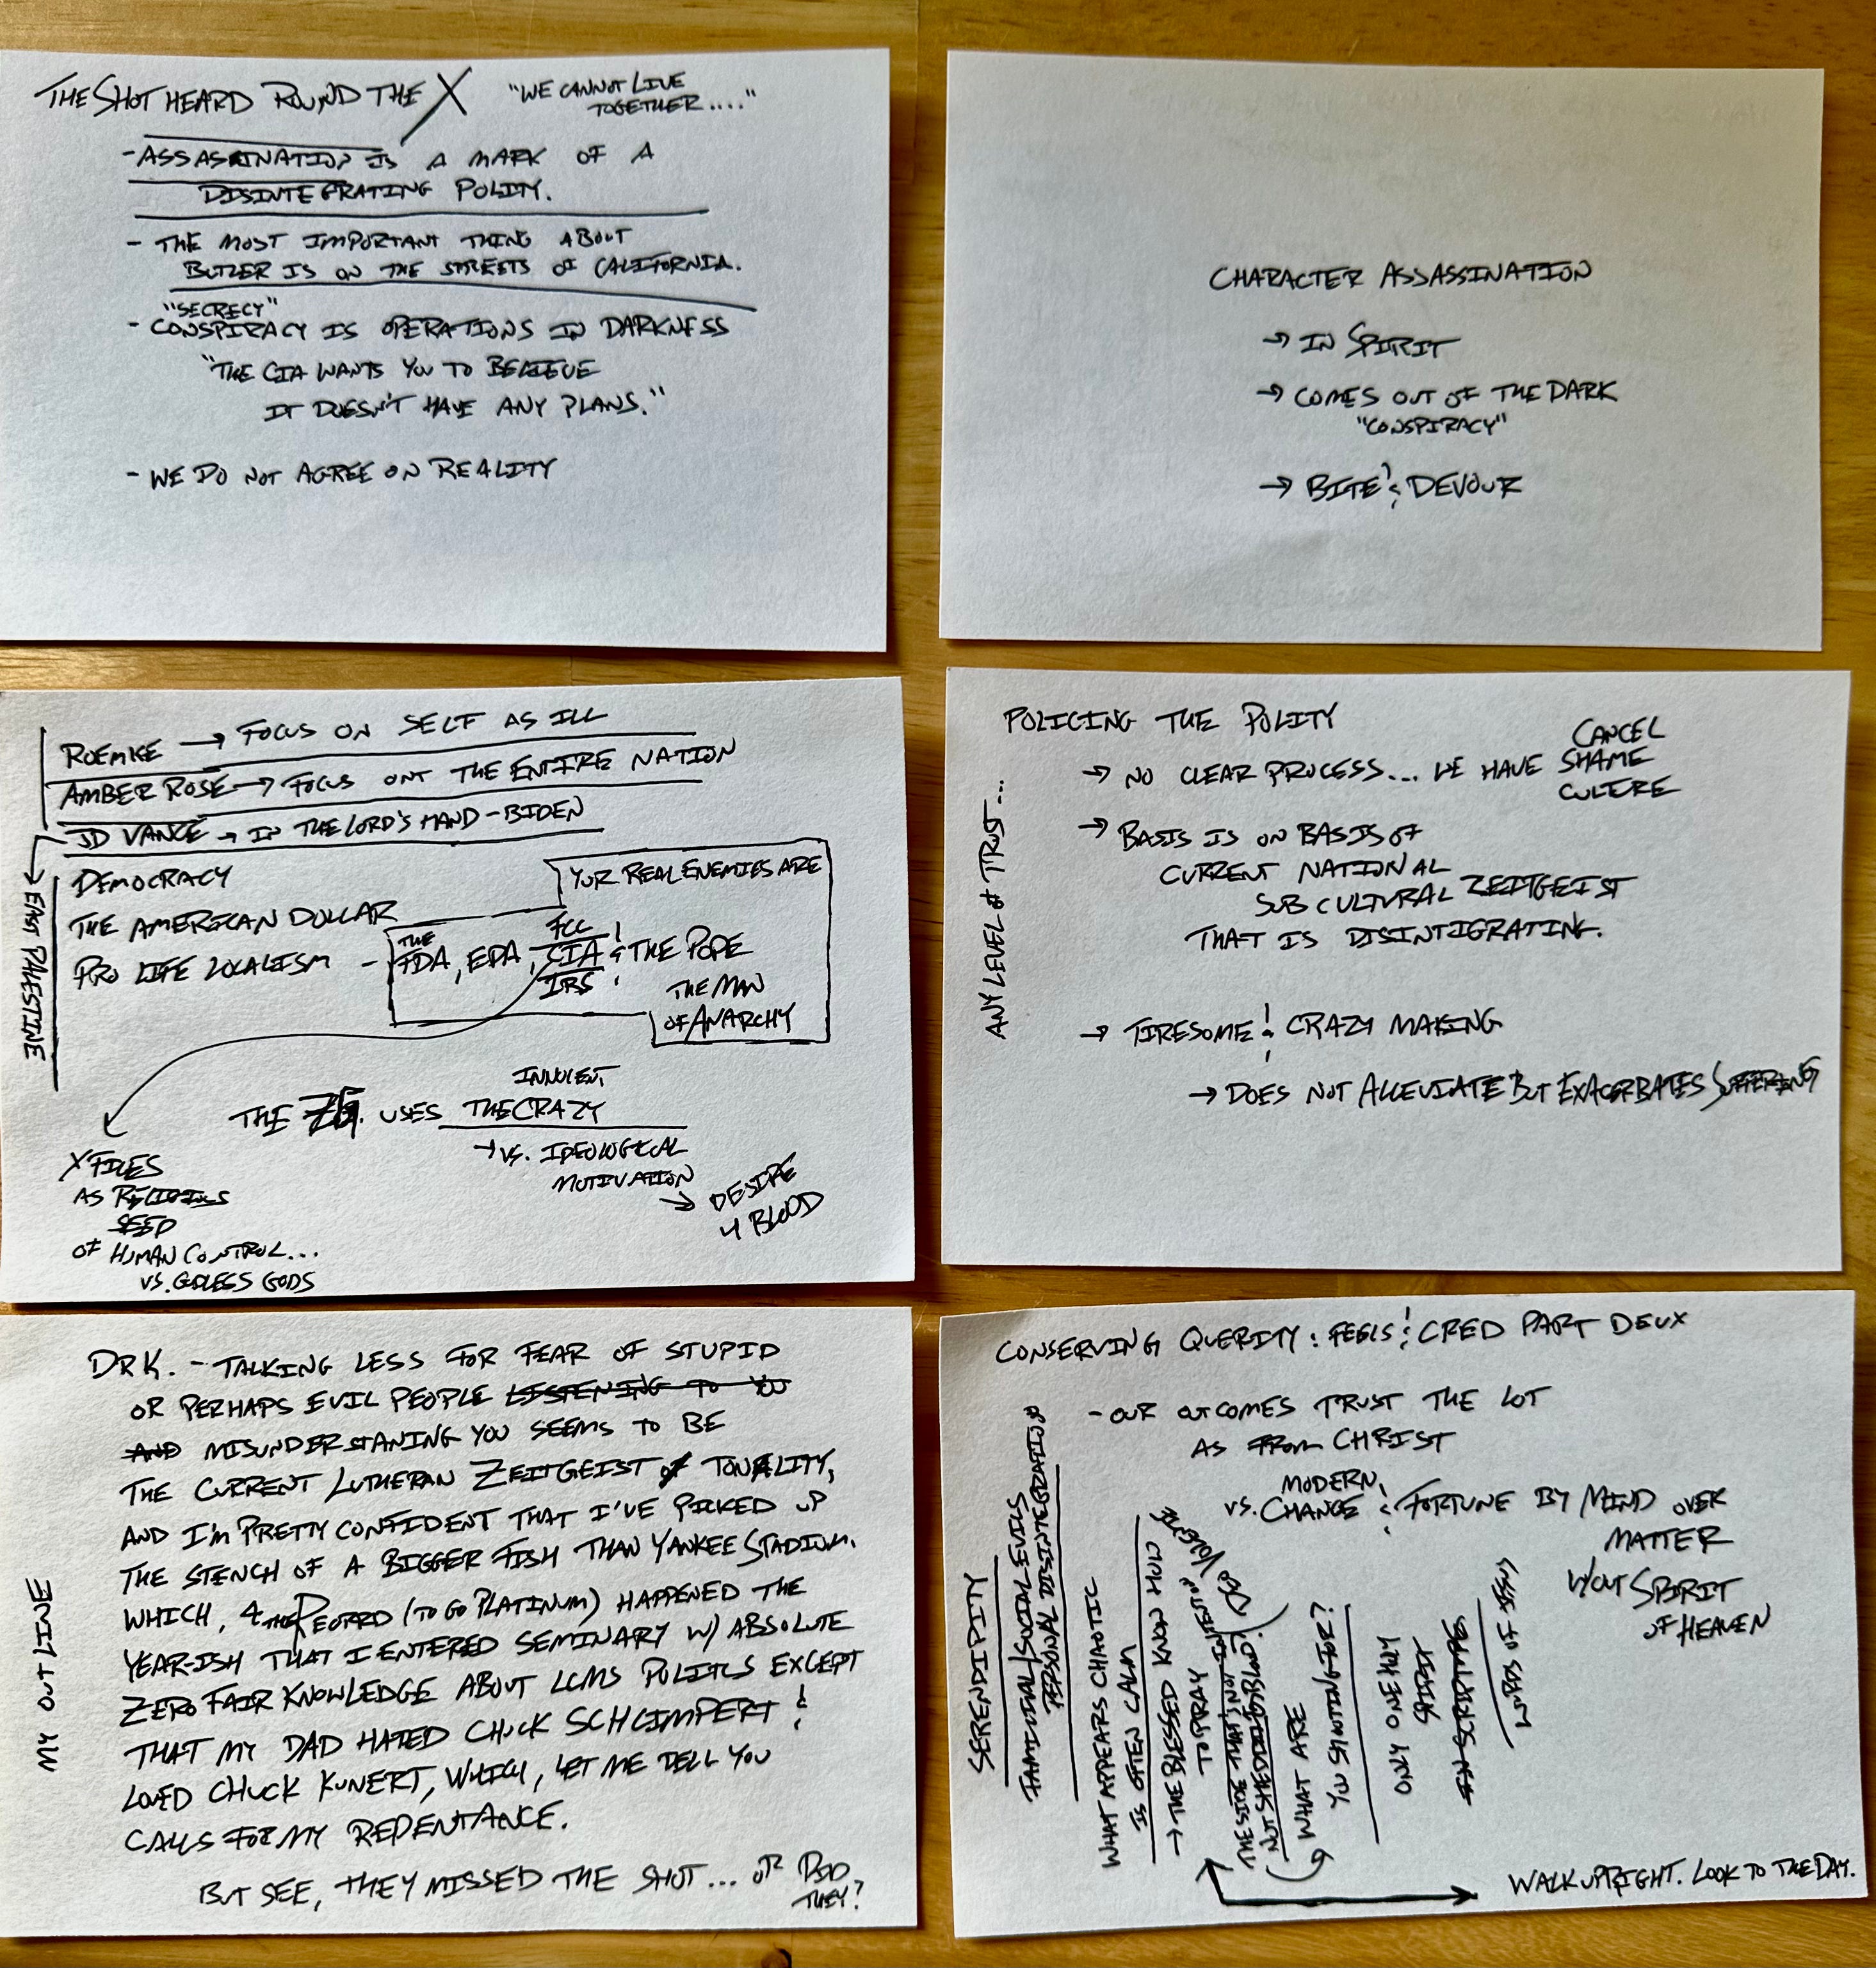 THE SHOT HEARD ROUND THE X
"WE CANNOT LIVE
TOGETHER...."
- ASSASSINATION IS A MARK OF A
DISINTEGRATING POLITY.
- THE MOST IMPORTANT THING ABOUT
BUTLER IS ON THE STREETS OF CALIFORNIA.
"SECRECY"
- CONSPIRACY IS OPERATIONS IN DARKNESS
"THE CIA WANTS YOU TO BELIEVE
IT DOESN'T HAVE ANY PLANS."
- WE DO NOT AGREE ON REALITY
CHARACTER ASSASSINATION
→ IN SPIRIT
→ COMES OUT OF THE DARK
"CONSPIRACY"
→ BITE & DEVOUR
ROEMKE → FOCUS ON SELF AS ILL
AMBER ROSE → FOCUS ONT THE ENTIRE NATION
JD VANCE → IN THE LORD'S HAND - BIDEN
EAST PALESTINE
DEMOCRACY
THE AMERICAN DOLLAR
PRO LIFE LOCALISM -
YOUR REAL ENEMIES ARE
THE
FCC
FDA, EPA, CIA & THE POPE
IRS
THE MAN
OF ANARCHY
INNOCENT
THE ZG. USES THE CRAZY
→ VS. IDEOLOGICAL
MOTIVATION
→ DESIRE
4 BLOOD
X FILES
AS RELIGIOUS
SEED
OF HUMAN CONTROL...
VS. GODLESS GODS
POLICING THE POLITY
ANY LEVEL OF TRUST...
→ NO CLEAR PROCESS... WE HAVE
CANCEL
SHAME
CULTURE
→ BASIS IS ON BASIS OF
CURRENT NATIONAL
SUB CULTURAL ZEITGEIST
THAT IS DISINTIGRATING.
→ TIRESOME & CRAZY MAKING
→ DOES NOT ALLEVIATE BUT EXACERBATES SUFFERING
MY OUTLINE
DRK. - TALKING LESS FOR FEAR OF STUPID
OR PERHAPS EVIL PEOPLE LISTENING TO YOU
AND MISUNDERSTANING YOU SEEMS TO BE
THE CURRENT LUTHERAN ZEITGEIST OF TONALITY,
AND I'M PRETTY CONFIDENT THAT I'VE PICKED UP
THE STENCH OF A BIGGER FISH THAN YANKEE STADIUM.
WHICH, 4 THE RECORD (TO GO PLATINUM) HAPPENED THE
YEAR-ISH THAT I ENTERED SEMINARY W/ ABSOLUTE
ZERO FAIR KNOWLEDGE ABOUT LCMS POLITICS EXCEPT
THAT MY DAD HATED CHUCK SCHCIMPERT &
LOVED CHUCK KUNERT, WHICH, LET ME TELL YOU
CALLS FOR MY REPENTANCE.
BUT SEE, THEY MISSED THE SHOT... OR DID
THEY?
CONSERVING QUERITY: FEELS & CRED PART DEUX
- OUR OUTCOMES TRUST THE LOT
AS FROM CHRIST
MODERN
VS. CHANGE & FORTUNE BY MIND OVER
MATTER
W/OUT SPIRIT
OF HEAVEN
SERENDIPITY
FAMILIAL/SOCIAL EVILS
PERSONAL DISINTEGRATION
WHAT APPEARS CHAOTIC
IS OFTEN CALM
→ THE BLESSED KNOW HOW
TO PRAY
NOT SHED BLOOD.
WHAT ARE
YOU SHOOTING FOR?
ONLY ONE HOLY
SPIRIT
SCRIPTURE
WORDS OF JESUS
WALK UPRIGHT. LOOK TO THE DAY.